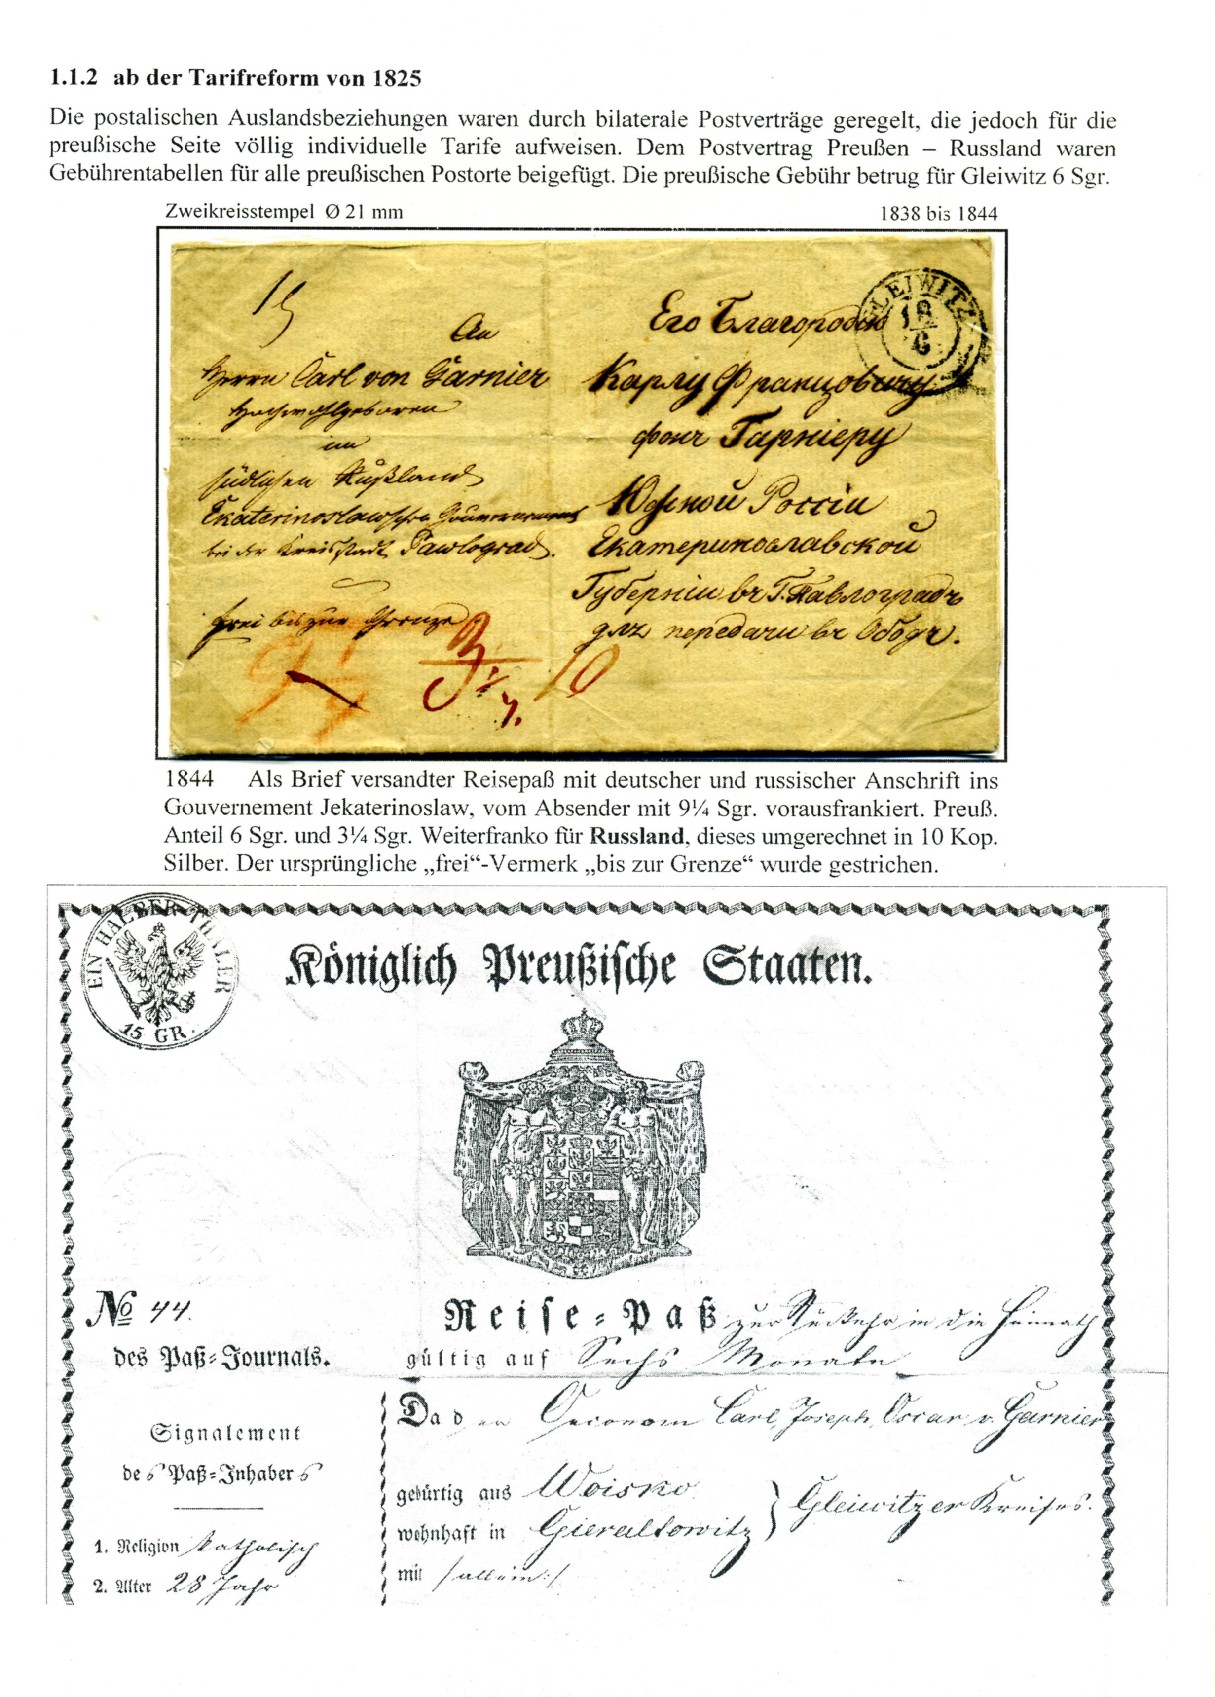 1.1.2 ab der Tarifreform von 1825
Die postalischen Auslandsbeziehungen waren durch bilaterale Postverträge geregelt, die jedoch für die
preußische Seite völlig individuelle Tarife aufweisen. Dem Postvertrag Preußen – Russland waren
Gebührentabellen für alle preußischen Postorte beigefügt. Die preußische Gebühr betrug für Gleiwitz 6 Sgr.
Zweikreisstempel Ø 21 mm
1838 bis 1844
GLEIWITZ
18
6
15
An
Herrn Carl von Garnier
Hochwohlgeboren
im
südlichen Rußland
Ekaterinoslawschen Gouvernement
bei der Kreisstadt Pawlograd.
frei bis zur Grenze
Его Благородію
Карлу Францовичу
фонъ Гарніеру
Южной Россіи
Екатеринославской
Губерніи въ Г. Павлоградъ
для передачи въ
10
1844 Als Brief versandter Reisepaß mit deutscher und russischer Anschrift ins
Gouvernement Jekaterinoslaw, vom Absender mit 9¼ Sgr. vorausfrankiert. Preuß.
Anteil 6 Sgr. und 3¼ Sgr. Weiterfranko für Russland, dieses umgerechnet in 10 Kop.
Silber. Der ursprüngliche „frei“-Vermerk „bis zur Grenze“ wurde gestrichen.
EIN HALBER THALER
15 GR.
Königlich Preußische Staaten.
No 44.
des Paß-Journals.
Reise-Paß zur Rückkehr in die Heimath
gültig auf Sechs Monate
Signalement
des Paß-Inhabers
1. Religion katholisch
2. Alter 28 Jahr
Da der Oeconom Carl Joseph Oscar v. Garnier
gebürtig aus Woisko
wohnhaft in Gieraltowitz
Gleiwitzer Kreises.
mit /:allein:/